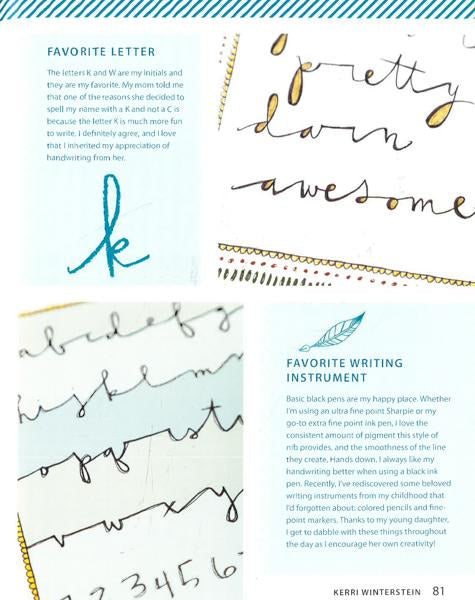 FAVORITE LETTER
The letters K and W are my initials and
they are my favorite. My mom told me
that one of the reasons she decided to
spell my name with a K and not a C is
because the letter K is much more fun
to write. I definitely agree, and I love
that I inherited my appreciation of
handwriting from her.
k
pretty
darn
awesome
abcdefg
hijklmn
opqrst
uvwxy
123456
FAVORITE WRITING
INSTRUMENT
Basic black pens are my happy place. Whether
I'm using an ultra fine point Sharpie or my
go-to extra fine point ink pen, I love the
consistent amount of pigment this style of
nib provides, and the smoothness of the line
they create. Hands down. I always like my
handwriting better when using a black ink
pen. Recently, I've rediscovered some beloved
writing instruments from my childhood that
I'd forgotten about: colored pencils and fine-
point markers. Thanks to my young daughter,
I get to dabble with these things throughout
the day as I encourage her own creativity!
KERRI WINTERSTEIN 81